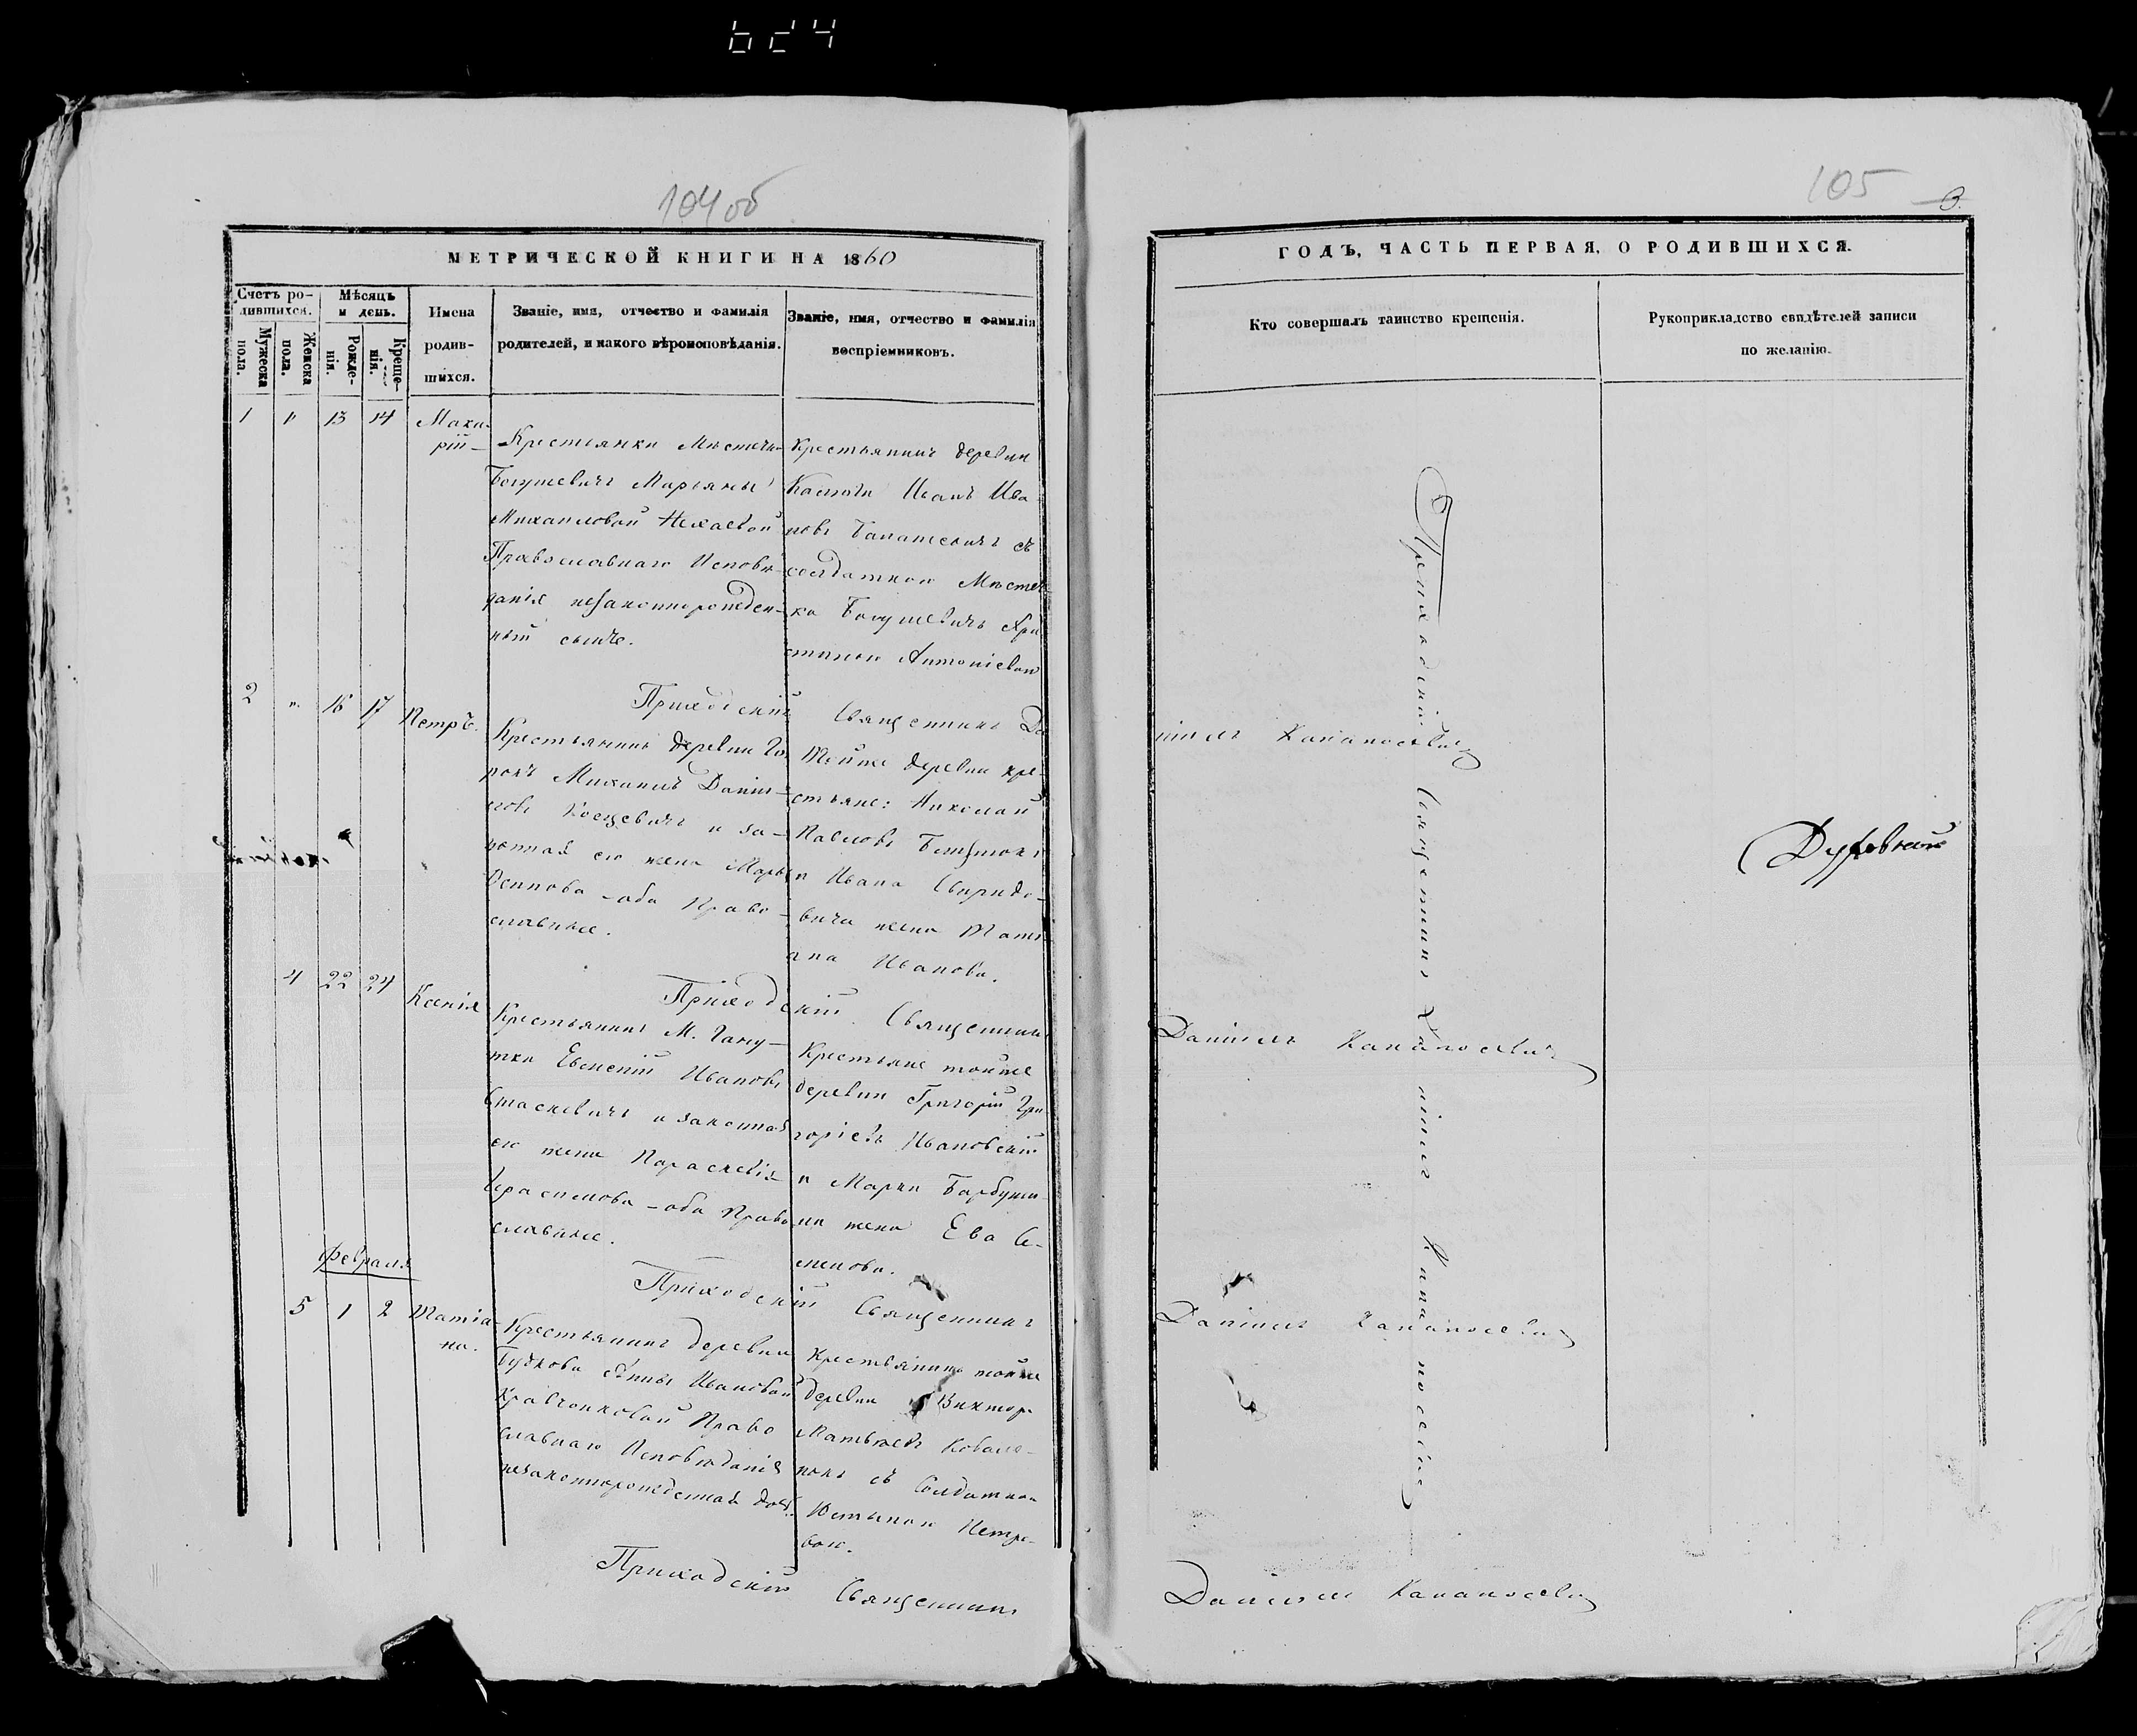 104 об
105
3.
МЕТРИЧЕСКОЙ КНИГИ НА 1860
ГОДЪ, ЧАСТЬ ПЕРВАЯ, О РОДИВШИХСЯ.
Счетъ ро-
дившихся.
Мужеска
пола.
Женска
пола.
Мѣсяцъ
и день.
Рожде-
нія.
Креще-
нія.
Имена
родив-
шихся.
Званіе, имя, отчество и фамилія
родителей, и какого вѣроисповѣданія.
Званіе, имя, отчество и фамилія
воспріемниковъ.
Кто совершалъ таинство крещенія.
Рукоприкладство свидѣтелей записи
по желанію.
1 " 13 14
Мака-
рій
Крестьянки Мѣстечка
Богушевичъ Марьяны
Михаиловой
Православнаго Исповѣ-
данія незаконнорожден-
ный сынъ.
Крестьянинъ деревни
Иванъ Ива
новъ съ
солдаткою Мѣстеч
ка Богушевичъ Хри
стиною Антоніевою
Приходскій Священникъ Да
ніилъ
2 " 16 17
Петръ.
Крестьянинъ деревни Го
рокъ Михаилъ Даніи-
ловъ и за-
конная его жена Марья
Осипова - оба Право-
славные.
Тойже деревни кре-
стьяне: Николай
Павловъ
и Ивана Свиридо-
вича жена Тать
яна Иванова.
Приходскій Священникъ
Даніилъ
4 22 24
Ксенія
Крестьянинъ М.
Евсевій Ивановъ
Стаскевичъ и законная
его жена Параскевія
Герасимова - оба Право
славные.
Крестьяне тойже
деревни Григорій Гри
горіевъ Ивановскій
и Марки
жена Ева Се-
менова.
Приходскій Священникъ
Даніилъ
Февраля
5 1 2
Татіа-
на.
Крестьянки деревни
Анны Ивановой
Право
славнаго Исповѣданія
незаконнорожденная дочь.
Крестьянинъ тойже
деревни Викторъ
Матвѣевъ Ковале-
нокъ съ Солдаткою
Юстыною Петро-
вою.
Приходскій Священникъ
Даніилъ
Приходскій Священникъ Даніилъ